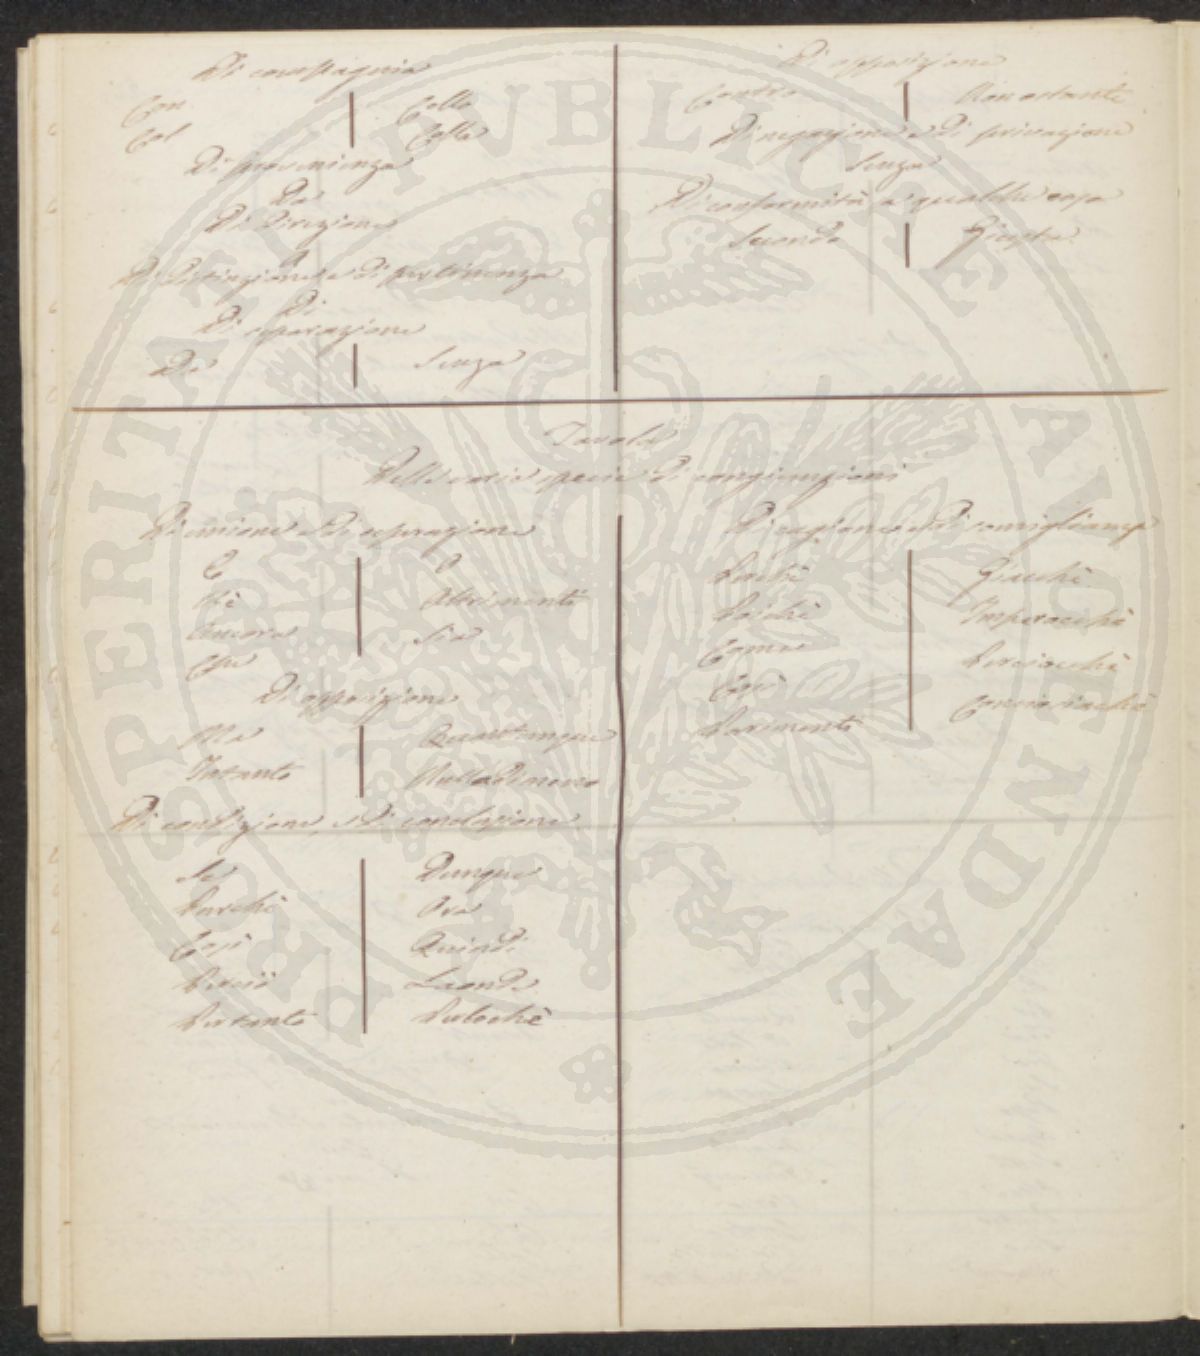 Di compagnia
Con Collo
Col Colla
Di provenienza
Da
Di Direzione
A
Di Distinzione e di pertinenza
Di
Di separazione
Da Senza
Di opposizione
Contro Non ostante
Di negazione e Di privazione
Senza
Di conformità a qualche cosa
Secondo Giusta
Tavola
Delle varie specie di congiunzioni
Di unione e Di separazione
E O
Nè Altrimenti
Ancora Sia
Che
Di opposizione
Ma Quantunque
Intanto Nulladimeno
Di condizione, e Di conclusione
Se Dunque
Purchè Ora
Così Quindi
Perciò Laonde
Pertanto Perlochè
Di ragione e Di somiglianza
Perchè Giacchè
Poichè Imperocchè
Come Perciocchè
Così Conciosiachè
Parimenti
PROSPERITATI PVBLICAE AVGENDAE